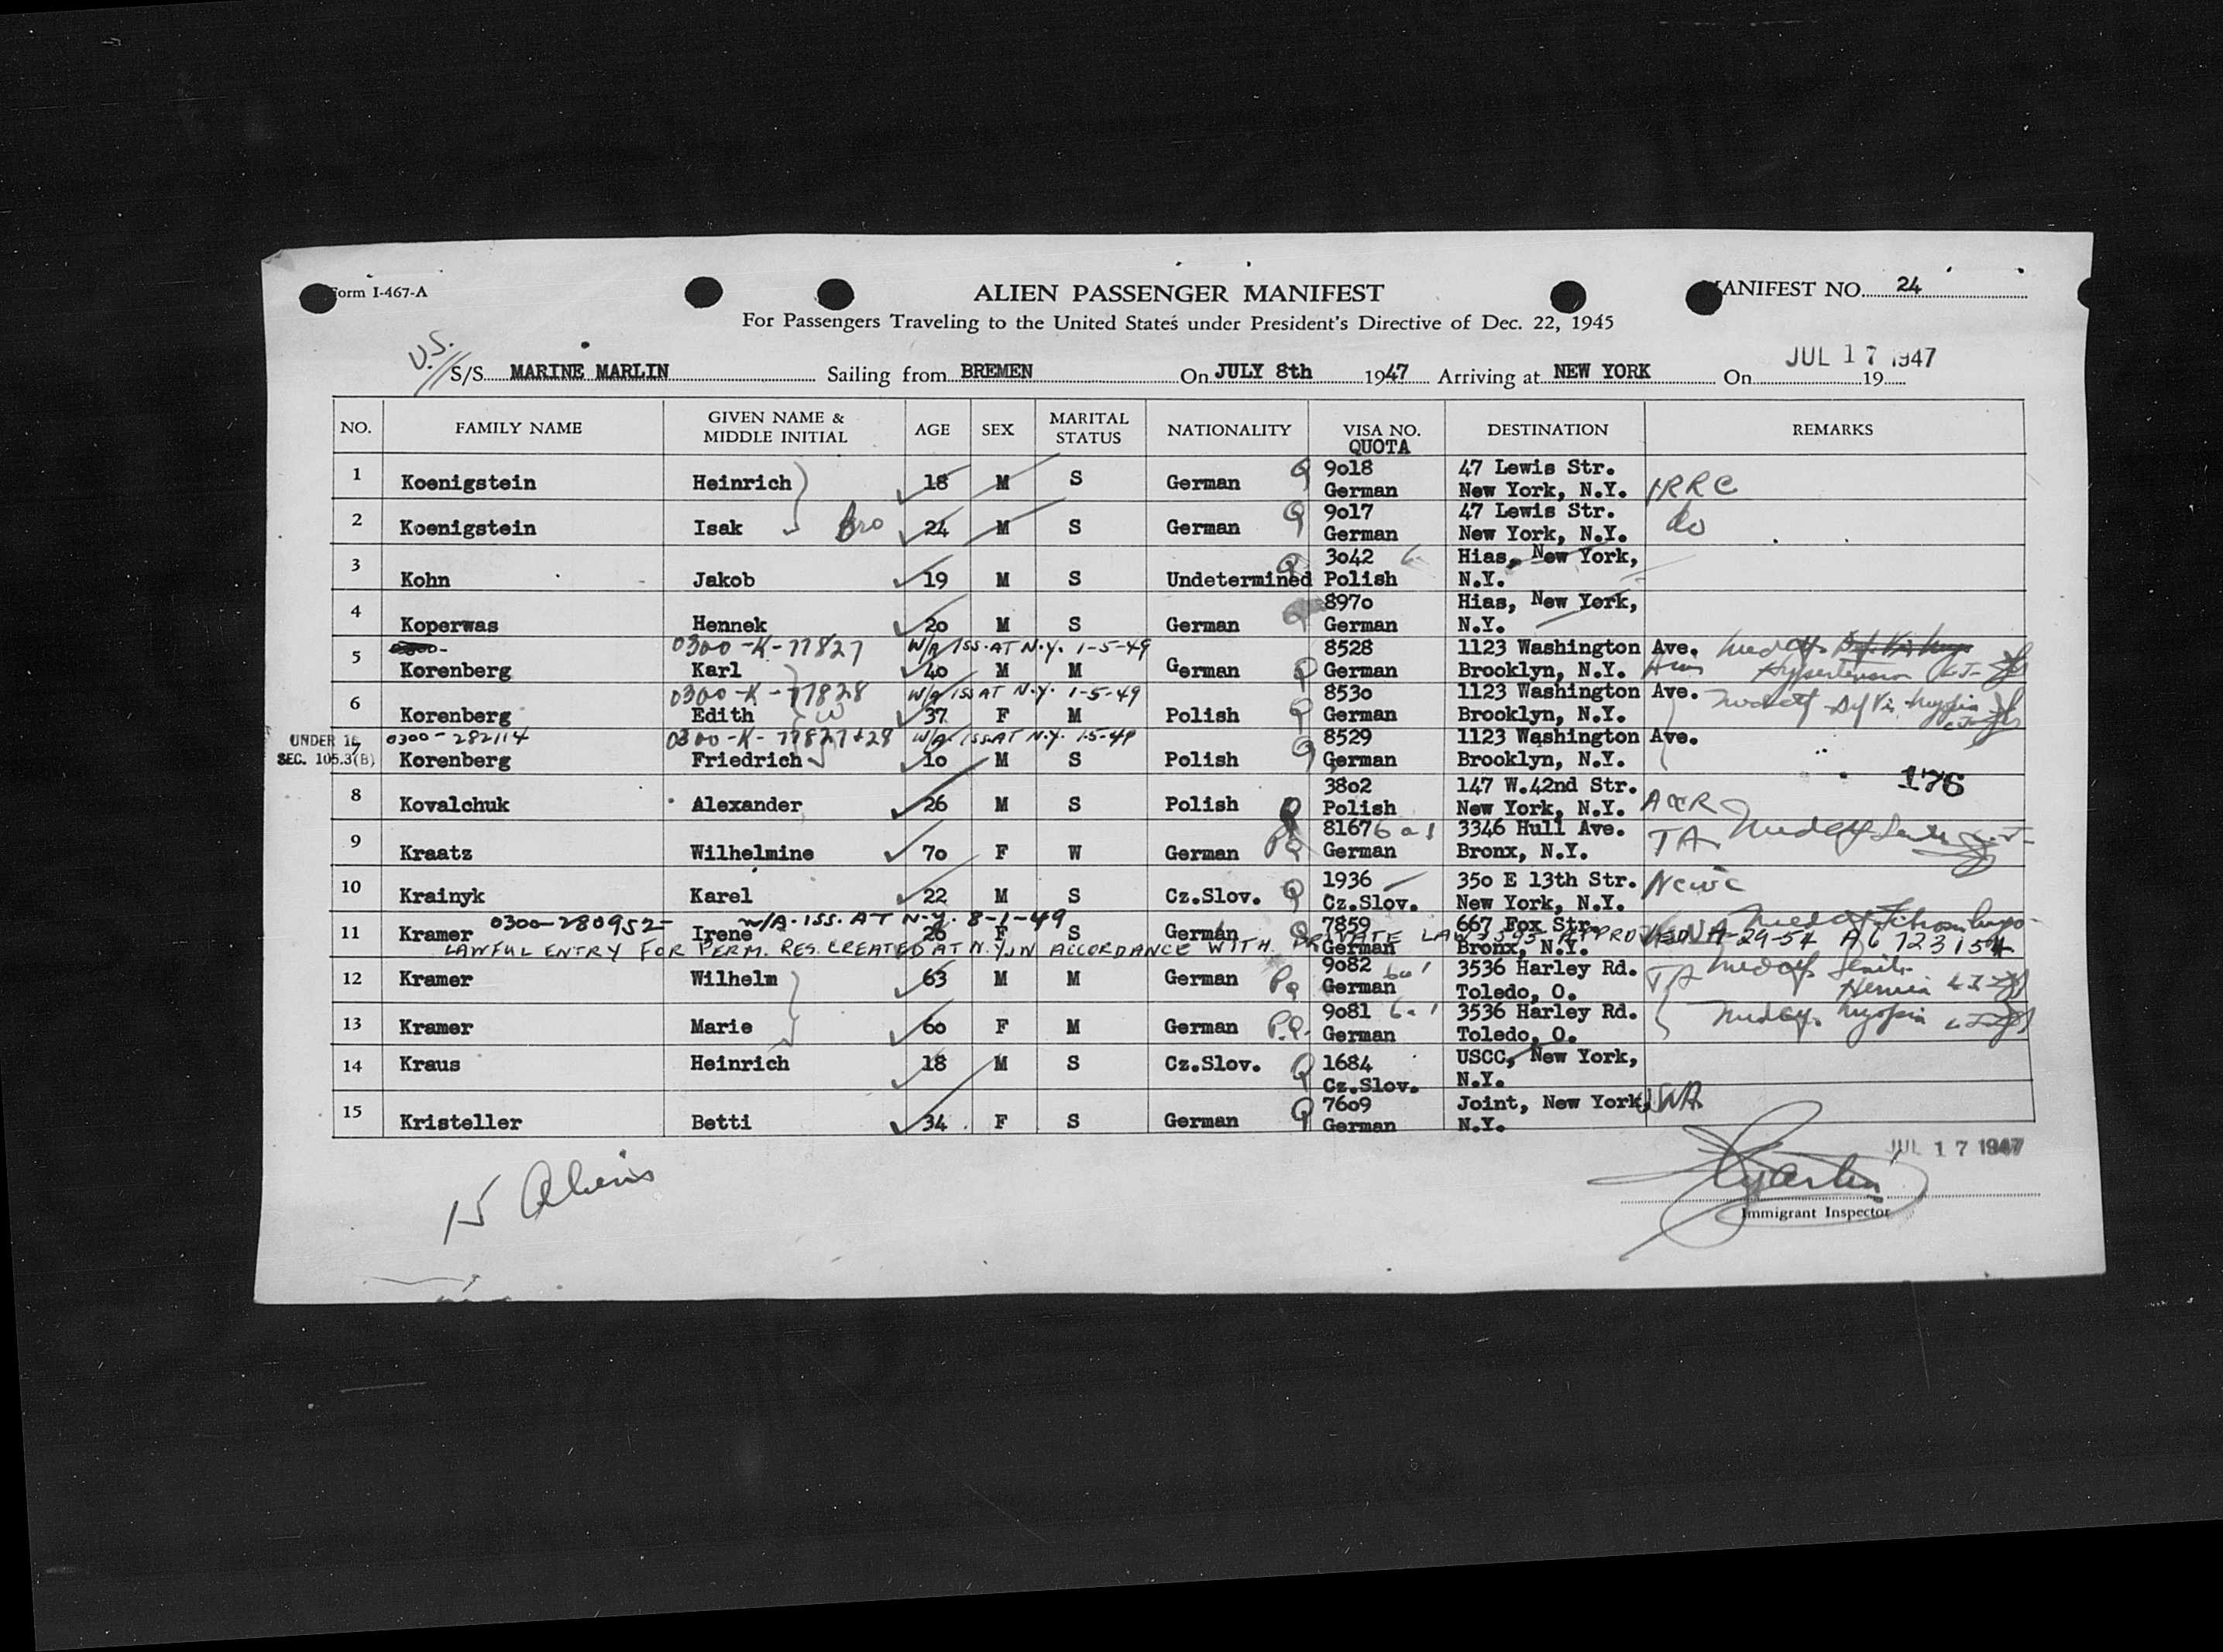 Form I-467-A
ALIEN PASSENGER MANIFEST
MANIFEST NO. 24
For Passengers Traveling to the United States under President's Directive of Dec. 22, 1945
U.S.
S/S MARINE MARLIN Sailing from BREMEN On JULY 8th 1947 Arriving at NEW YORK On JUL 17 1947 19
NO. FAMILY NAME GIVEN NAME & MIDDLE INITIAL AGE SEX MARITAL STATUS NATIONALITY VISA NO. QUOTA DESTINATION REMARKS
1 Koenigstein Heinrich 18 M S German Q 9018 German 47 Lewis Str. New York, N.Y.
2 Koenigstein Isak Bro 24 M S German Q 9017 German 47 Lewis Str. New York, N.Y. do
3 Kohn Jakob 19 M S Undetermined Q 3042 Polish Hias, New York, N.Y.
4 Koperwas Hennek 20 M S German Q 8970 German Hias, New York, N.Y.
0300-K-77827 W/A ISS. AT N.Y. 1-5-49
5 Korenberg Karl 40 M M German Q 8528 German 1123 Washington Ave. Brooklyn, N.Y. Hypertension
0300-K-77828 W/A ISS AT N.Y. 1-5-49
6 Korenberg Edith W 37 F M Polish Q 8530 German 1123 Washington Ave. Brooklyn, N.Y.
UNDER 16 SEC. 105.3(B)
0300-282114 0300-K-77827+28 W/A ISS AT N.Y. 1-5-49
7 Korenberg Friedrich 10 M S Polish Q 8529 German 1123 Washington Ave. Brooklyn, N.Y.
176
8 Kovalchuk Alexander 26 M S Polish Q 3802 Polish 147 W.42nd Str. New York, N.Y.
9 Kraatz Wilhelmine 70 F W German PQ 8167 6a1 German 3346 Hull Ave. Bronx, N.Y. TA
10 Krainyk Karel 22 M S Cz.Slov. Q 1936 Cz.Slov. 350 E 13th Str. New York, N.Y. NCWC
0300-280952 W/A. ISS. AT N.Y. 8-1-49
11 Kramer Irene 26 F S German Q 7859 German 667 Fox Str. Bronx, N.Y.
LAWFUL ENTRY FOR PERM. RES. CREATED AT N.Y. IN ACCORDANCE WITH PRIVATE LAW APPROVED A6 723154
12 Kramer Wilhelm 63 M M German PQ 9082 6a1 German 3536 Harley Rd. Toledo, O. TA Hernia
13 Kramer Marie 60 F M German P.Q. 9081 6a1 German 3536 Harley Rd. Toledo, O. myopia
14 Kraus Heinrich 18 M S Cz.Slov. Q 1684 Cz.Slov. USCC, New York, N.Y.
15 Kristeller Betti 34 F S German Q 7609 German Joint, New York, N.Y.
15 Aliens
JUL 17 1947
Immigrant Inspector